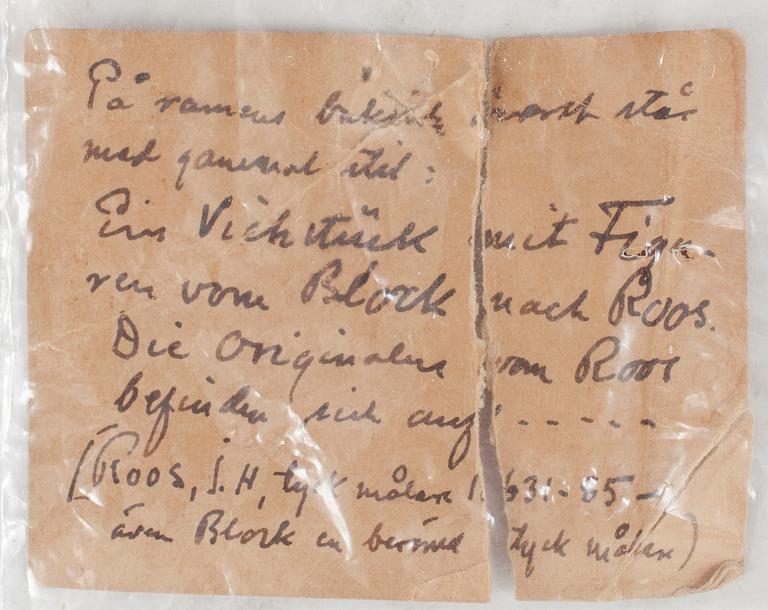 På ramens baksida överst står
med gammal stil:
Ein Viehstück mit Figu-
ren vom Block nach Roos.
Die Originalen vom Roos
befinden sich auf - - - - -
(Roos, J. H, tysk målare 1631-85 -
även Block en berömd tysk målare)